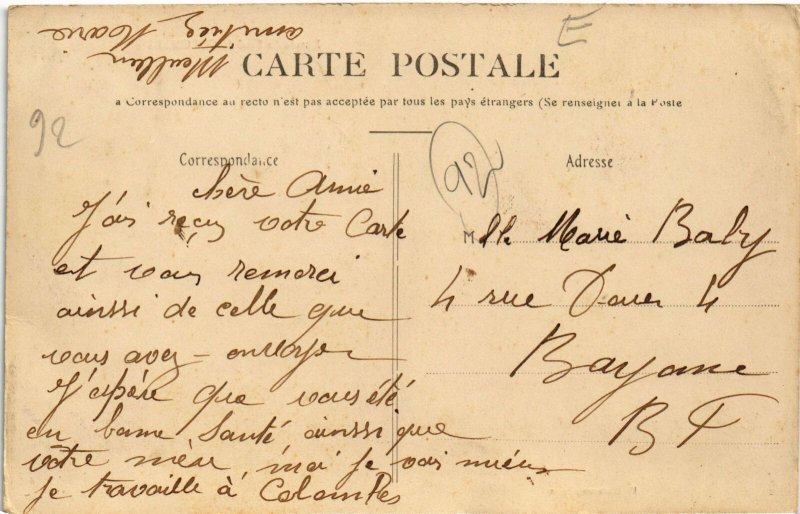 Meilleur
amitiés Marie
E
CARTE POSTALE
a Correspondance au recto n'est pas acceptée par tous les pays étrangers (Se renseigner à la Poste
92
92
Correspondance
chère Amie
J'ai reçus votre Carte
et vous remerci
ainssi de celle que
vous avez - envoyer
J'espère que vous été
en bonne Santé ainssi que
votre mère, moi je vais mieux
je travaille à Colombes
Adresse
Mlle Marie Baby
4 rue 4
Bayonne
B P